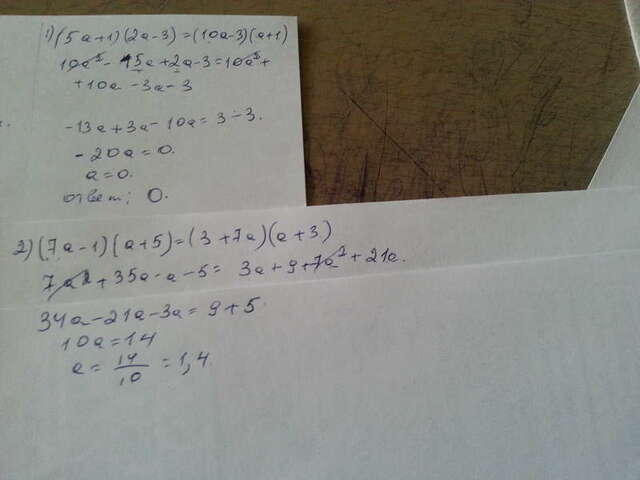 1) (5a+1)(2a-3)=(10a-3)(a+1)
10a²-15a+2a-3=10a²+
+10a-3a-3
-13a+3a-10a=3-3.
-20a=0.
a=0.
ответ: 0.
2) (7a-1)(a+5)=(3+7a)(a+3)
7a²+35a-a-5=3a+9+7a²+21a.
34a-21a-3a=9+5.
10a=14
a=14/10=1,4.